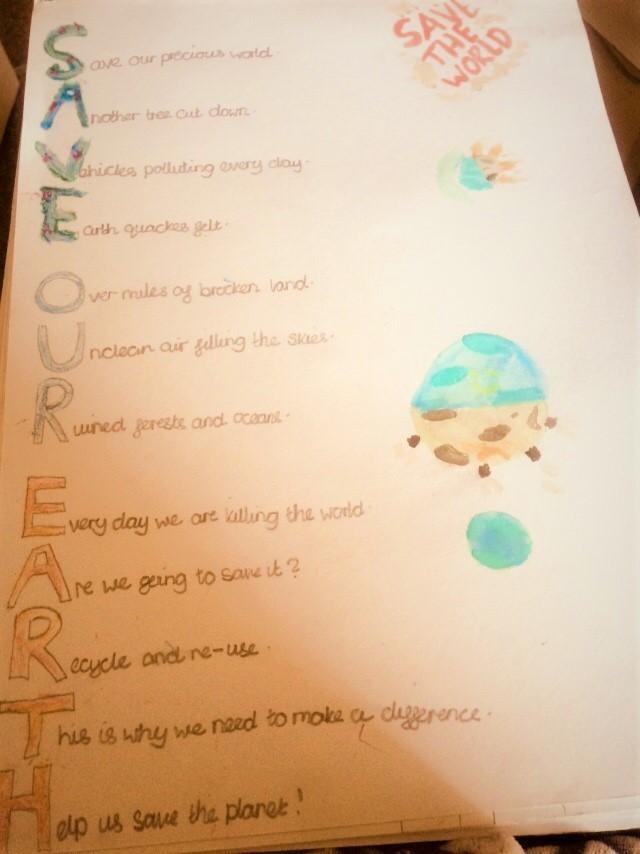 SAVE
THE
WORLD
Save our precious world.
Another tree cut down.
Vehicles polluting every day.
Earth quackes felt.
Over miles of brocken land.
Unclean air filling the skies.
Ruined forests and oceans.
Every day we are killing the world
Are we going to save it?
Recycle and re-use.
This is why we need to make a difference.
Help us save the planet!